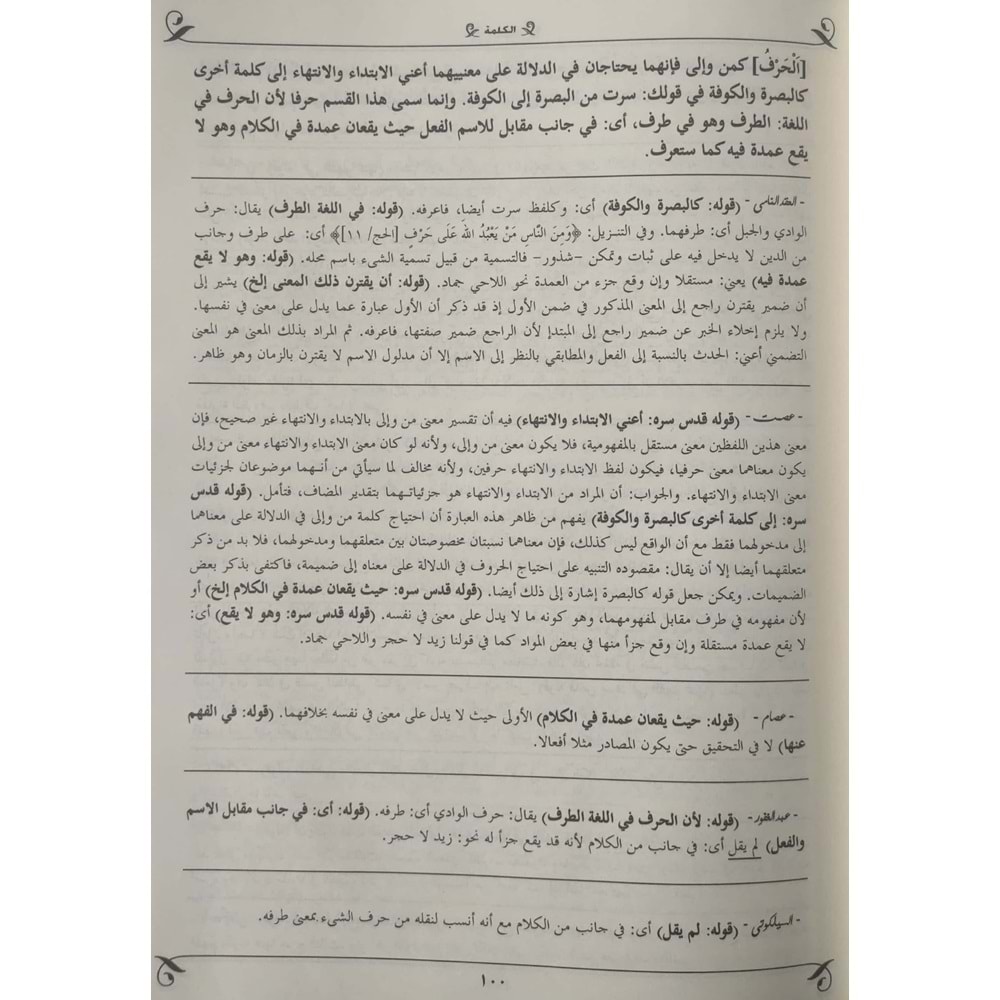 الكلمة
[اَلْحَرْفُ] كمن وإلى فإنهما يحتاجان في الدلالة على معنييهما أعني الابتداء والانتهاء إلى كلمة أخرى
كالبصرة والكوفة في قولك: سرت من البصرة إلى الكوفة. وإنما سمى هذا القسم حرفا لأن الحرف في
اللغة: الطرف وهو في طرف، أى: في جانب مقابل للاسم الفعل حيث يقعان عمدة في الكلام وهو لا
يقع عمدة فيه كما ستعرف.
- العقد النامى - (قوله: كالبصرة والكوفة) أى: وكلفظ سرت أيضا، فاعرفه. (قوله: في اللغة الطرف) يقال: حرف
الوادي والجبل أى: طرفهما. وفي التنـزيل: ﴿وَمِنَ النَّاسِ مَنْ يَعْبُدُ اللهَ عَلَى حَرْفٍ [الحج/ ١١]﴾ أى: على طرف وجانب
من الدين لا يدخل فيه على ثبات وتمكن –شذور- فالتسمية من قبيل تسمية الشىء باسم محله. (قوله: وهو لا يقع
عمدة فيه) يعني: مستقلا وإن وقع جزء من العمدة نحو اللاحي جماد. (قوله: أن يقترن ذلك المعنى إلخ) يشير إلى
أن ضمير يقترن راجع إلى المعنى المذكور في ضمن الأول إذ قد ذكر أن الأول عبارة عما يدل على معنى في نفسها.
ولا يلزم إخلاء الخبر عن ضمير راجع إلى المبتدإ لأن الراجع ضمير صفتها، فاعرفه. ثم المراد بذلك المعنى هو المعنى
التضمني أعني: الحدث بالنسبة إلى الفعل والمطابقي بالنظر إلى الاسم إلا أن مدلول الاسم لا يقترن بالزمان وهو ظاهر.
- عصمت - (قوله قدس سره: أعني الابتداء والانتهاء) فيه أن تفسير معنى من وإلى بالابتداء والانتهاء غير صحيح، فإن
معنى هذين اللفظين معنى مستقل بالمفهومية، فلا يكون معنى من وإلى، ولأنه لو كان معنى الابتداء والانتهاء معنى من وإلى
يكون معناهما معنى حرفيا، فيكون لفظ الابتداء والانتهاء حرفين، ولأنه مخالف لما سيأتي من أنـهما موضوعان لجزئيات
معنى الابتداء والانتهاء. والجواب: أن المراد من الابتداء والانتهاء هو جزئياتـهما بتقدير المضاف، فتأمل. (قوله قدس
سره: إلى كلمة أخرى كالبصرة والكوفة) يفهم من ظاهر هذه العبارة أن احتياج كلمة من وإلى في الدلالة على معناهما
إلى مدخولهما فقط مع أن الواقع ليس كذلك، فإن معناهما نسبتان مخصوصتان بين متعلقهما ومدخولهما، فلا بد من ذكر
متعلقهما أيضا إلا أن يقال: مقصوده التنبيه على احتياج الحروف في الدلالة على معناه إلى ضميمة، فاكتفى بذكر بعض
الضميمات. ويمكن جعل قوله كالبصرة إشارة إلى ذلك أيضا. (قوله قدس سره: حيث يقعان عمدة في الكلام إلخ) أو
لأن مفهومه في طرف مقابل لمفهومهما، وهو كونه ما لا يدل على معنى في نفسه. (قوله قدس سره: وهو لا يقع) أى:
لا يقع عمدة مستقلة وإن وقع جزأ منها في بعض المواد كما في قولنا زيد لا حجر واللاحي جماد.
- عصام - (قوله: حيث يقعان عمدة في الكلام) الأولى حيث لا يدل على معنى في نفسه بخلافهما. (قوله: في الفهم
عنها) لا في التحقيق حتى يكون المصادر مثلا أفعالا.
- عبد الغفور - (قوله: لأن الحرف في اللغة الطرف) يقال: حرف الوادي أى: طرفه. (قوله: أى: في جانب مقابل الاسم
والفعل) لم يقل أى: في جانب من الكلام لأنه قد يقع جزأ له نحو: زيد لا حجر.
- السيلكوتى - (قوله: لم يقل) أى: في جانب من الكلام مع أنه أنسب لنقله من حرف الشىء بمعنى طرفه.
١٠٠